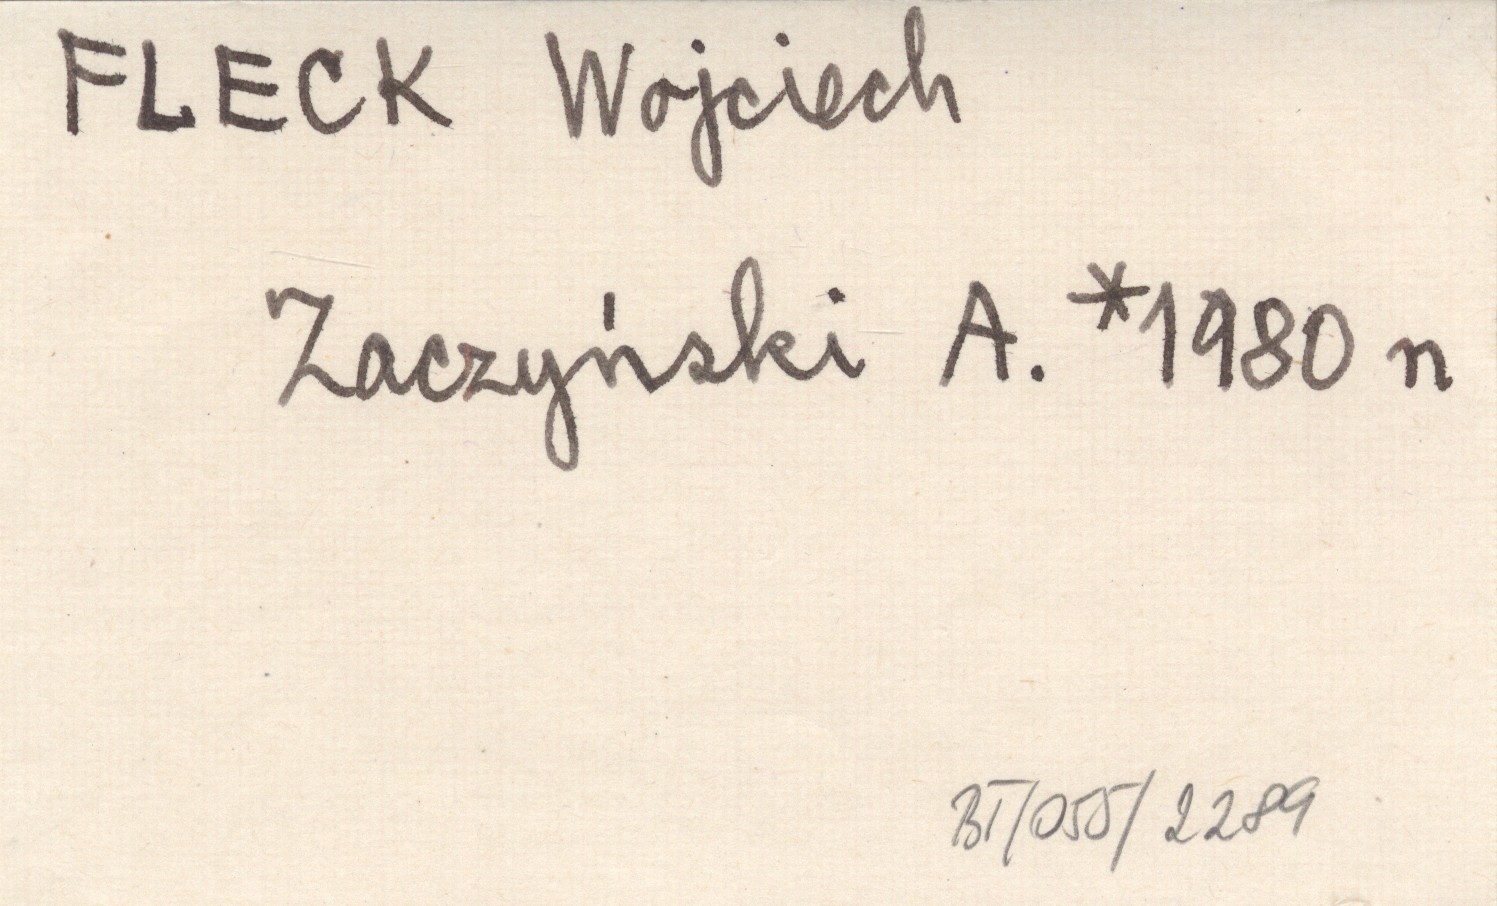 FLECK Wojciech
Zaczyński A. *1980 n
BT/055/2289